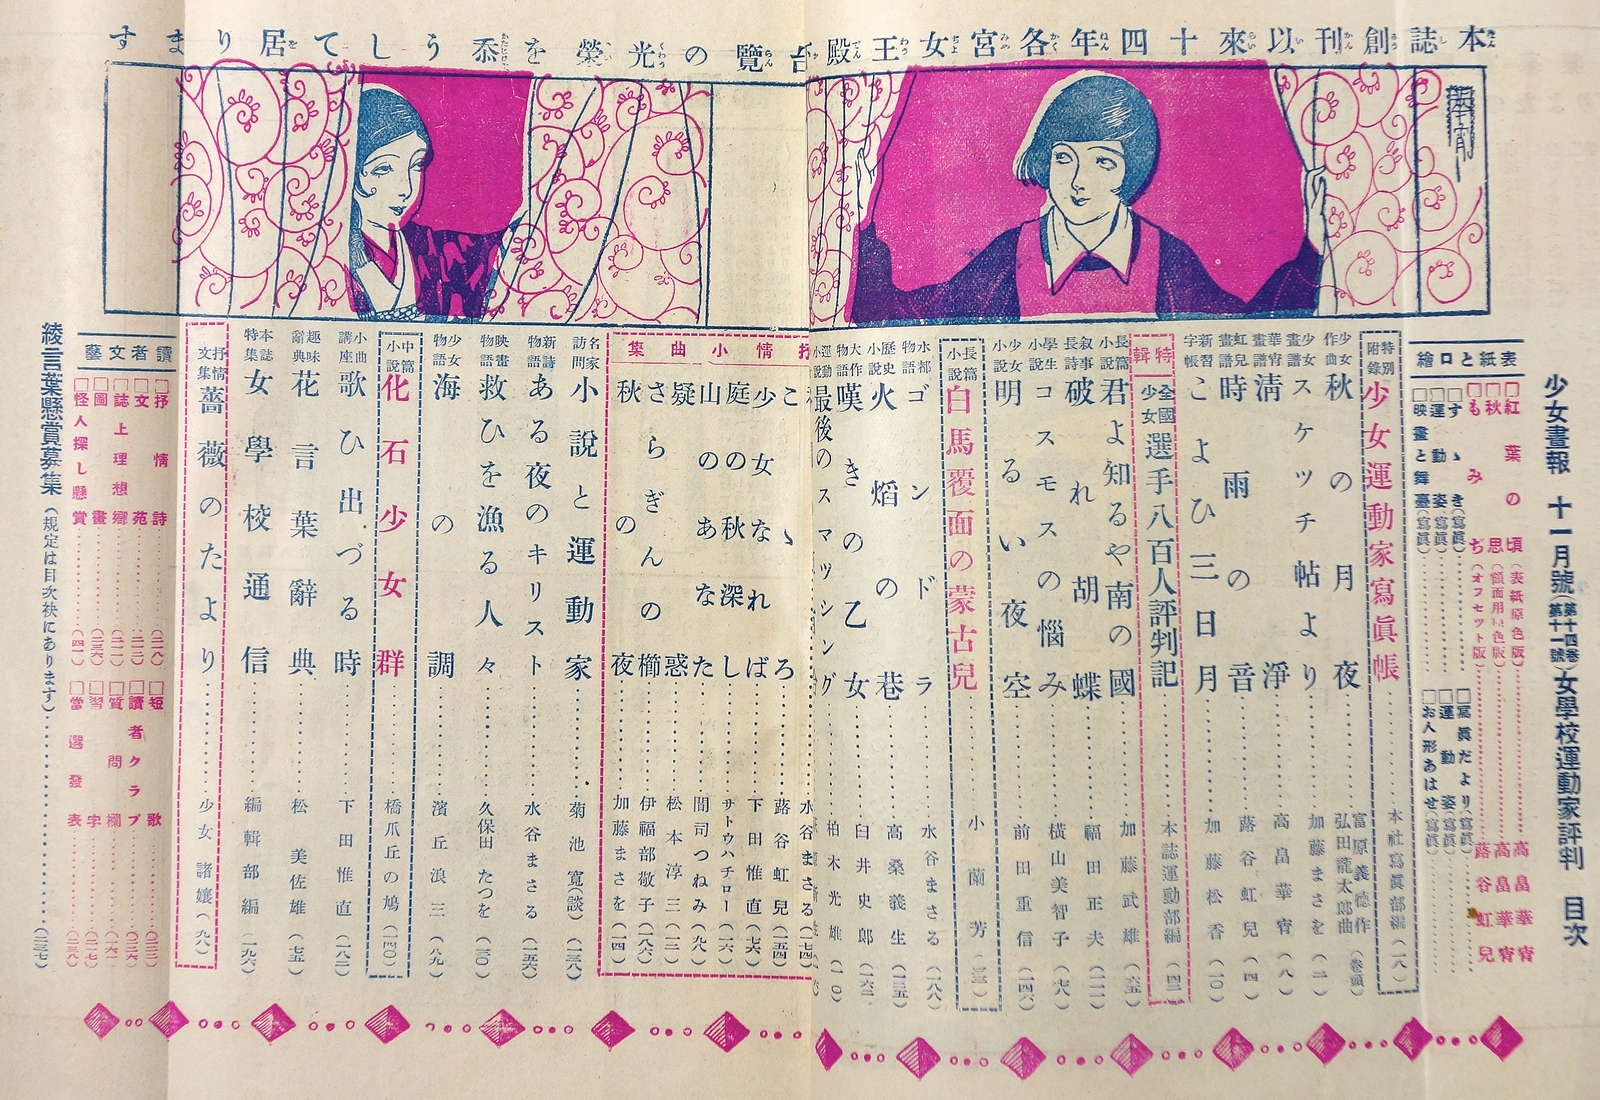 本誌創刊以來十四年各宮女王殿台覽の光榮を忝うして居ります
華宵
少女畫報 十一月號(第十四卷第十一號)女學校運動家評判 目次
表紙と口繪
□紅葉の頃(表紙原色版)……高畠華宵
□秋思(額面用原色版)……高畠華宵
□もみぢ(オフセット版)……蕗谷虹兒
□すゝき(寫眞)……
□運動姿(寫眞)……
□映畫と舞臺(寫眞)……
□寫眞だより(寫眞)……
□運動姿(寫眞)……
□お人形あはせ(寫眞)……
特別附錄 少女運動家寫眞帳……本社寫眞部編(一八)
少女作曲 秋の月夜……富原義德作 弘田龍太郎曲(卷頭)
少女畫譜 スケッチ帖より……加藤まさを(二)
華宵畫譜 淸淨……高畠華宵(八)
虹兒畫譜 時雨の音……蕗谷虹兒(四)
新習字帳 こよひ三日月……加藤松香(一〇)
特輯 全國少女 選手八百人評判記……本誌運動部編(四二)
長篇小說 君よ知るや南の國……加藤武雄(六五)
敍事長詩 破れ胡蝶……福田正夫(二一一)
學生小說 コスモスの惱み……橫山美智子(七八)
少女小說 明るい夜空……前田重信(一四六)
長篇小說 白馬覆面の蒙古兒……小蘭芳(三三)
水都物語 ゴンドラ……水谷まさる(一八八)
歷史小說 火焰の巷……高桑義生(一三五)
大作物語 嘆きの乙女……臼井史郎(一六二)
運動小說 最後のスマッシング……柏木光雄(一〇)
抒情小曲集
こゝろ……水谷まさる(一七四)
少女なれば……蕗谷虹兒(一五四)
庭の秋深し……下田惟直(七六)
山のあなた……サトウハチロー(一六)
疑惑……間司つねみ(九八)
さらぎんの櫛……松本淳三(一二)
秋の夜……伊福部敬子(一八六)
加藤まさを(一四)
名家訪問 小說と運動家……菊池寬(談)(一三八)
新詩物語 ある夜のキリスト……水谷まさる(一五六)
映畫物語 救ひを漁る人々……久保田たつを(三〇)
少女物語 海の調……濱丘浪三(八九)
中篇小說 化石少女群……橋爪丘の鳩(一四〇)
小曲講座 歌ひ出づる時……下田惟直(一八二)
趣味辭典 花言葉辭典……松美佐雄(七五)
本誌特集 女學校通信……編輯部編(一九六)
抒情文集 薔薇のたより……少女諸孃(九八)
讀者文藝
□抒情詩……(二八)
□文苑……(二三)
□誌上理想鄕……(二二)
□圖畫……(二三六)
□怪人探し懸賞……(四一)
□短歌……(二三一)
□讀者クラブ……(二三六)
□質問欄……(一六六)
□習字……(二二七)
□當選發表……(二三八)
綾言葉懸賞募集(規定は目次袂にあります)……(二三七)